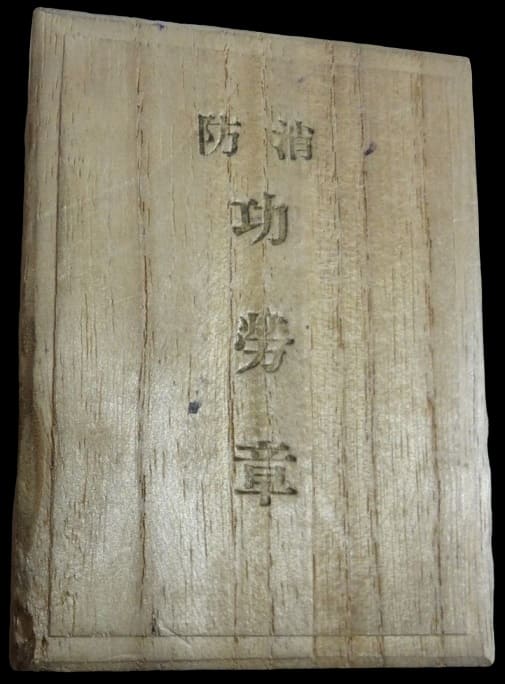 消防
功勞章